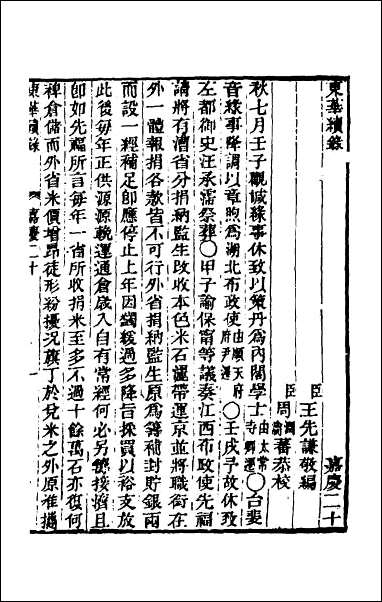 東華續錄
嘉慶二十
臣王先謙敬編
臣周瀹蕃恭校
秋七月壬子觀諴緣事休致以策丹爲內閣學士由太常寺卿遷〇台斐
音緣事降調以章煦爲湖北布政使由順天府府尹遷〇壬戌予故休致
左都御史汪承霈祭葬〇甲子諭保甯等議奏江西布政使先福
請將有漕省分捐納監生改收本色米石灑帶運京並將職銜在
外一體報捐各款皆不可行外省捐納監生原爲籌補封貯銀兩
而設一經補足卽應停止上年因蠲緩過多降旨採買以裕支放
此後每年正供源源輓運通倉歲入自有常經何必另籌接濟且
卽如先福所言每年一省所收捐米至多不過十餘萬石亦復何
裨倉儲而外省米價增昂徒形紛擾況旗丁於兌米之外原准攜
東華續錄
嘉慶二十
一